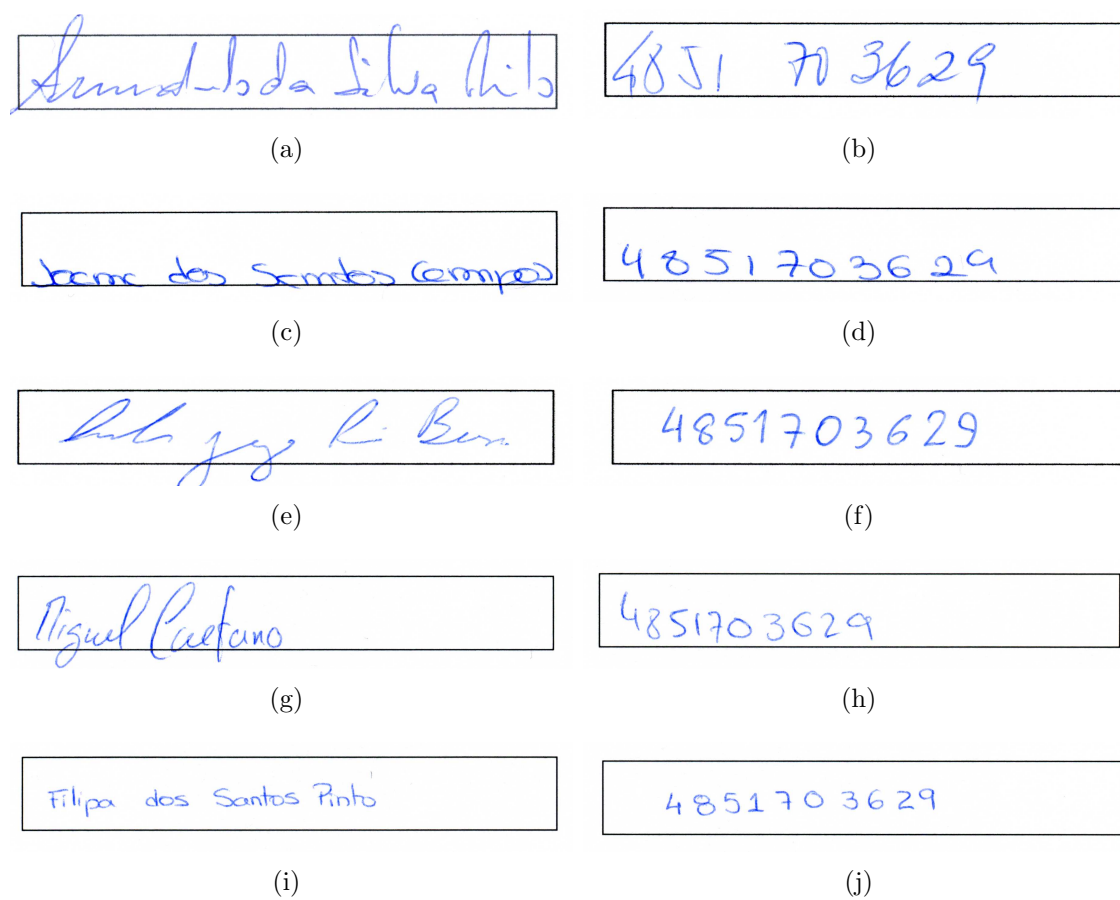 da Silva
4851 703629
(a)
(b)
Joana dos Santos Campos
4851703629
(c)
(d)
4851703629
(e)
(f)
Miguel Caetano
4851703629
(g)
(h)
Filipa dos Santos Pinto
4851703629
(i)
(j)